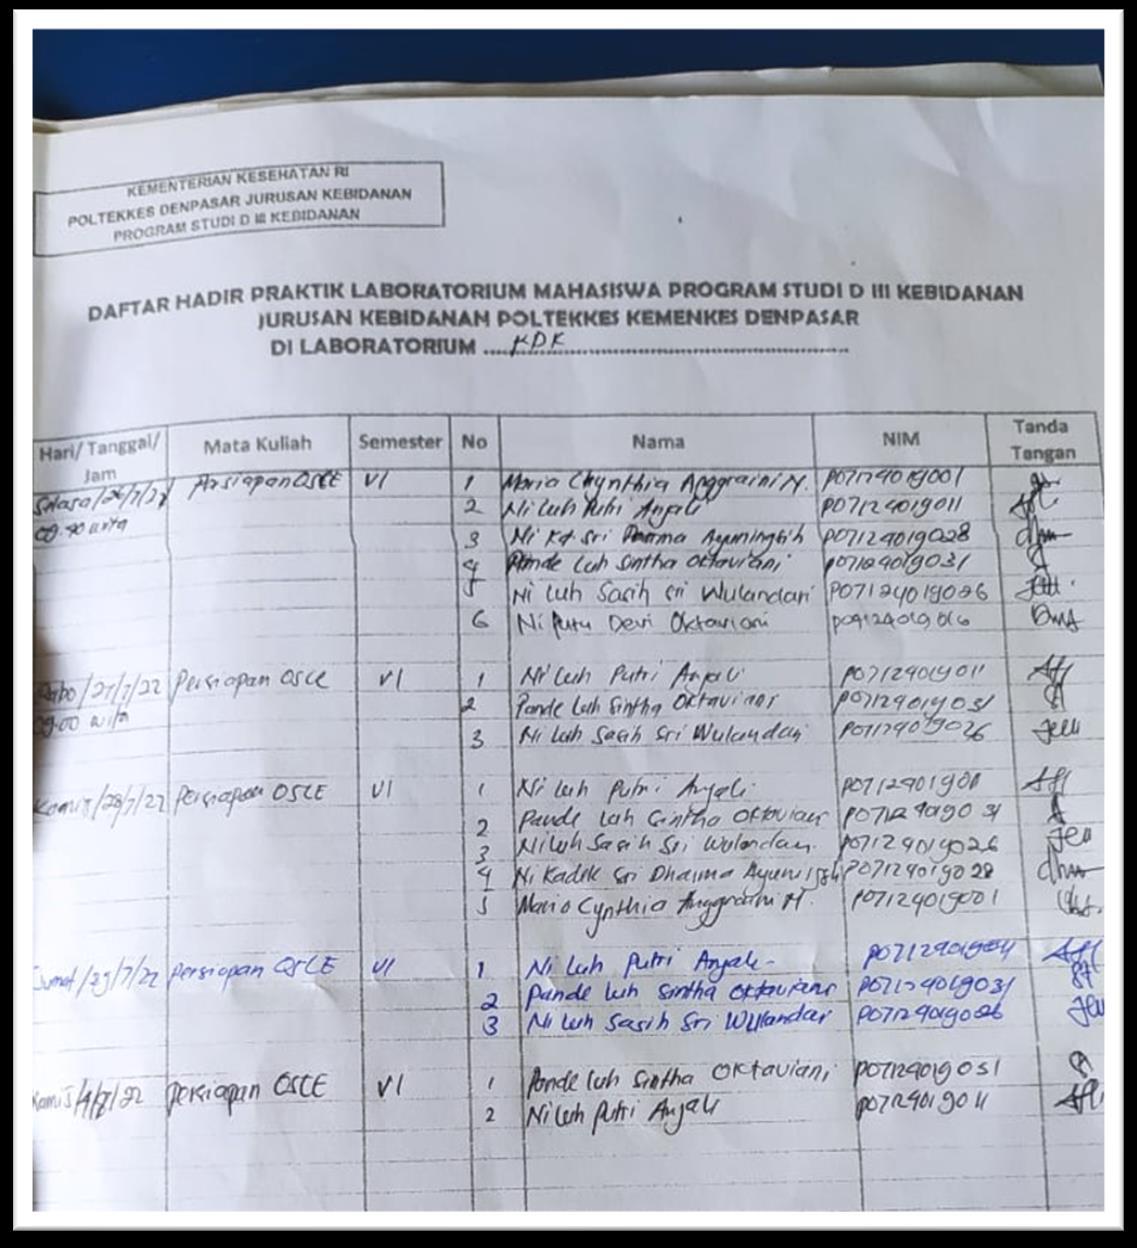 KEMENTERIAN KESEHATAN RI
POLTEKKES DENPASAR JURUSAN KEBIDANAN
PROGRAM STUDI D III KEBIDANAN
DAFTAR HADIR PRAKTIK LABORATORIUM MAHASISWA PROGRAM STUDI D III KEBIDANAN
JURUSAN KEBIDANAN POLTEKKES KEMENKES DENPASAR
DI LABORATORIUM ....KDK....
Hari/ Tanggal/ Jam Mata Kuliah Semester No Nama NIM Tanda Tangan
Selasa/26/7/22 Persiapan OSCE VI 1 Maria Chynthia Anggraini M. P07124019001
2 Ni Luh Putri Anjali P07124019011
3 Ni Kd Sri Dharma Ayuningsih P07124019028
4 Pande Luh Sintha Oktaviani P07124019031
5 Ni Luh Sasih Sri Wulandari P07124019026
6 Ni Putu Devi Oktaviani
Rabo/27/7/22 Persiapan OSCE VI 1 Ni Luh Putri Anjali P07124019011
09.00 wita 2 Pande Luh Sintha Oktaviani P07124019031
3 Ni Luh Sasih Sri Wulandari P07124019026
Kamis/28/7/22 Persiapan OSCE VI 1 Ni Luh Putri Anjali
2 Pande Luh Sintha Oktaviani P07124019031
3 Ni Luh Sasih Sri Wulandari P07124019026
4 Ni Kadek Sri Dharma Ayuningsih P07124019028
5 Maria Cynthia Anggraini M. P07124019001
Jumat/29/7/22 Persiapan OSCE VI 1 Ni Luh Putri Anjali
2 Pande Luh Sintha Oktaviani P07124019031
3 Ni Luh Sasih Sri Wulandar P07124019026
Kamis/4/8/22 Persiapan OSCE VI 1 Pande Luh Sintha Oktaviani P07124019031
2 Ni Luh Putri Anjali P07124019011